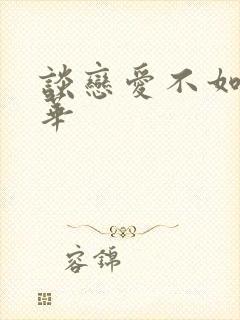 談戀愛不如
華
容錦